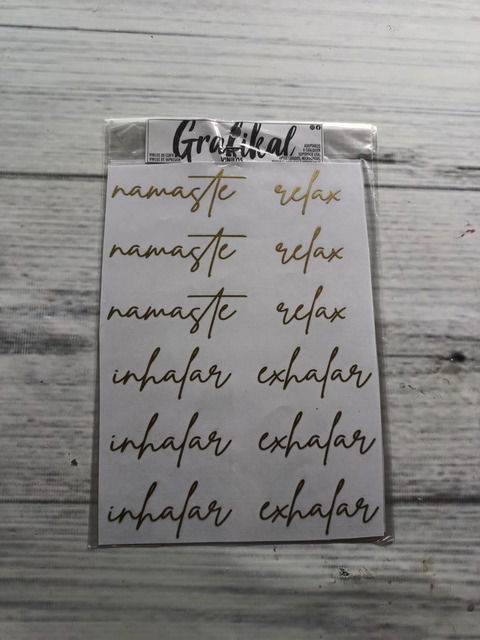 Grafikal
VINILOS
namaste relax
namaste relax
namaste relax
inhalar exhalar
inhalar exhalar
inhalar exhalar